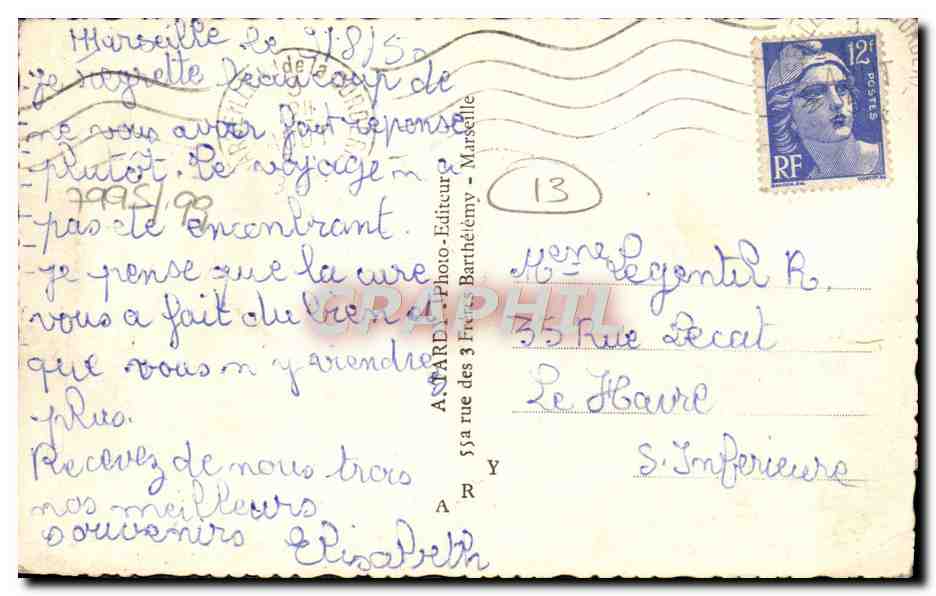 Marseille le 7/8/50
je regrette beaucoup de
ne vous avoir fait reponse
plutôt. Le voyage n a
pas été encombrant.
je pense que la cure
vous a fait du bien et
que vous n y viendres
plus.
Recevez de nous trois
nos meilleurs
souvenirs Elisabeth
7995/99
13
A. TARDY, Photo-Editeur
55a rue des 3 Frères Barthélémy - Marseille
A R Y
12f
POSTES
RF
Mme Legentil R.
35 Rue Lecat
Le Havre
S. Inferieure
CPAPHIL